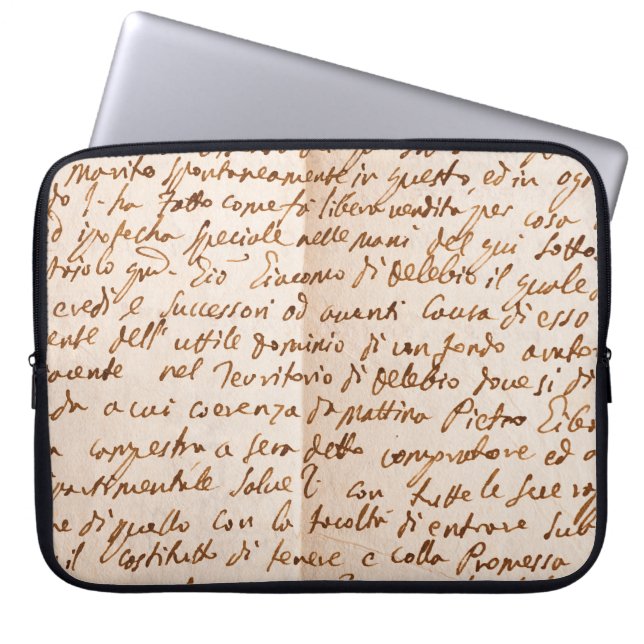 Marito spontaneamente in questo, ed in ogni
do I. ha fatto come fà libera vendita per cosa
d ipotecha speciale nelle mani del qui sotto
tasolo qd. Gio Giacomo di Delebio il quale
credi e Successori ad auanti Causa di esso
ente dell' uttile dominio di un fondo arator
iacente nel Territorio di Delebio doue si di
da a cui coerenza da mattina Pietro
campestra a sera detto compratore ed a
partimentale Salue con tutte le sue ra
e di quello con la facoltà di entrare sub
il costituto di tenere e colla Promessa